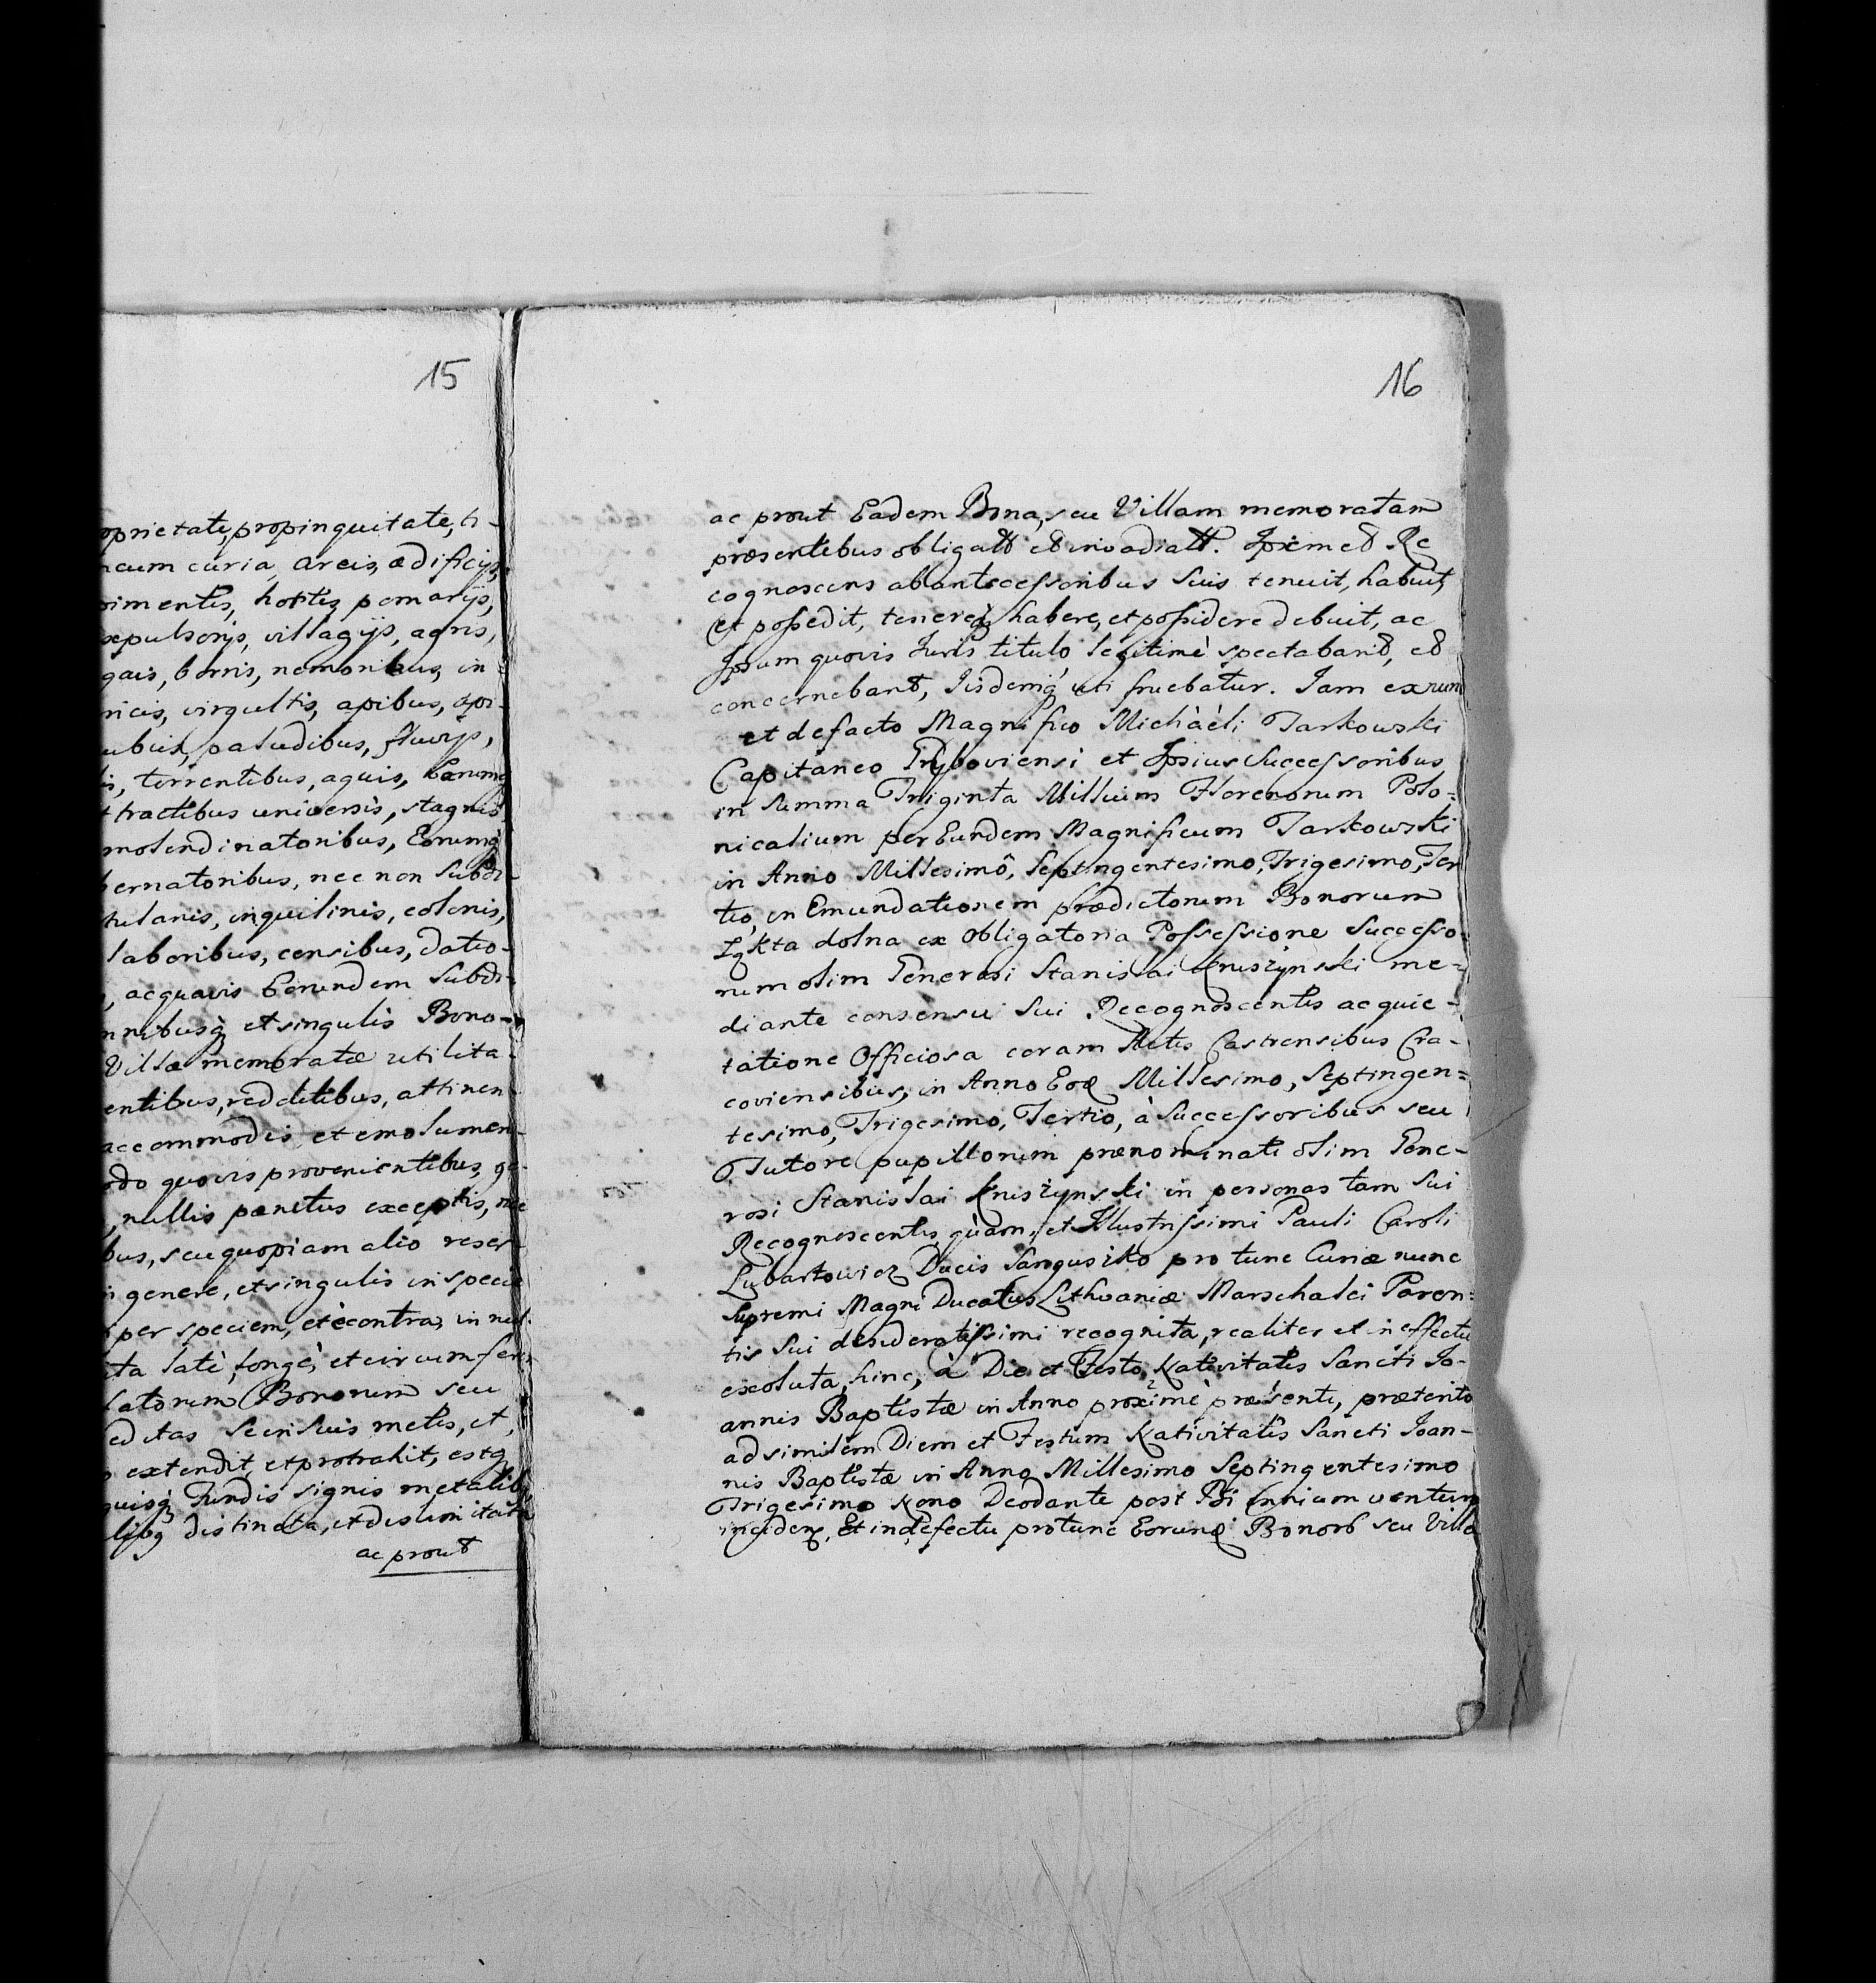 15
oprietate, propinquitate, ti-
cum curia, areis, ædificijs,
pimentis, hortis, pomarijs,
xpulsorijs, villagijs, agris,
gais, borris, nemoribus, in
ricis, virgultis, apibus, api-
ubus, paludibus, fluvijs,
is, torrentibus, aquis, Earumq
t tractibus universis, stagnis
molendinatoribus, Eorumq
bernatoribus, nec non Subdi-
tulanis, inquilinis, colonis,
laboribus, censibus, datio-
, ac quavis Eorundem Subdi-
mnibusq et singulis Bono-
Villæ memoratæ utilita-
entibus, redditibus, attinen-
accommodis et emolumen-
odo quovis provenientibus, ge-
, nullis pænitus exceptis, nec
bus, seu quopiam alio reser-
n genere, et singulis in specie
per speciem, et è contra, in nul-
ita latè, longè, et circumfer-
latorum Bonorum seu
editas se in suis metis, et
extendit, et protrahit, estq
quisq Fundis signis metalib
alijsq distincta, et dislimitata
ac prout
16
ac prout Eadem Bona, seu Villam memoratam
præsentibus obligatt et invadiatt. Ipsemet Re
cognoscens ab antecessoribus Suis tenuit, habuit,
et possedit, tenereq, habere, et possidere debuit, ac
Ipsum quovis Juris titulo legitimè spectabant, et
concernebant, Iisdemq uti fruebatur. Iam ex nunc
et de facto Magnifico Michàèli Tarkowski
Capitaneo Tryboviensi et Ipsius Successoribus
in Summa Triginta Millium Florenorum Polo-
nicalium per Eundem Magnificum Tarkowski
in Anno Millesimô, Septingentesimo, Trigesimo, Ter
tio, in Emundationem prædictorum Bonorum
Łękta dolna ex Obligatoria Possessione Successo-
rum olim Generosi Stanislai Kruszynski me-
diante consensu Sui Recognoscentis ac quie-
tatione Officiosa coram Actis Castrensibus Cra-
coviensibus, in Anno Eod Millesimo, Septingen-
tesimo, Trigesimo, Tertio, à Successoribus seu
Tutore pupillorum prænominati olim Gene-
rosi Stanislai Kruszynski in personas tam Sui
Recognoscentis, quàm, et Illustrissimi Pauli Caroli
Lubartowicz Ducis Sanguszko pro tunc Curiæ nunc
Supremi Magni Ducatus Lithvaniæ Marschalci Paren-
tis Sui desideratissimi recognita, realiter et in effectu
exoluta, hinc, à Die et Festo Nativitatis Sancti Jo-
annis Baptistæ in Anno proximè præsenti, præterito
ad similem Diem et Festum Nativitatis Sancti Joan-
nis Baptistæ in Anno Millesimo Septingentesimo
Trigesimo Nono Deo dante post Bi ennium ventum
inciden, Et in defectu protunc Eorund Bonor seu Villa